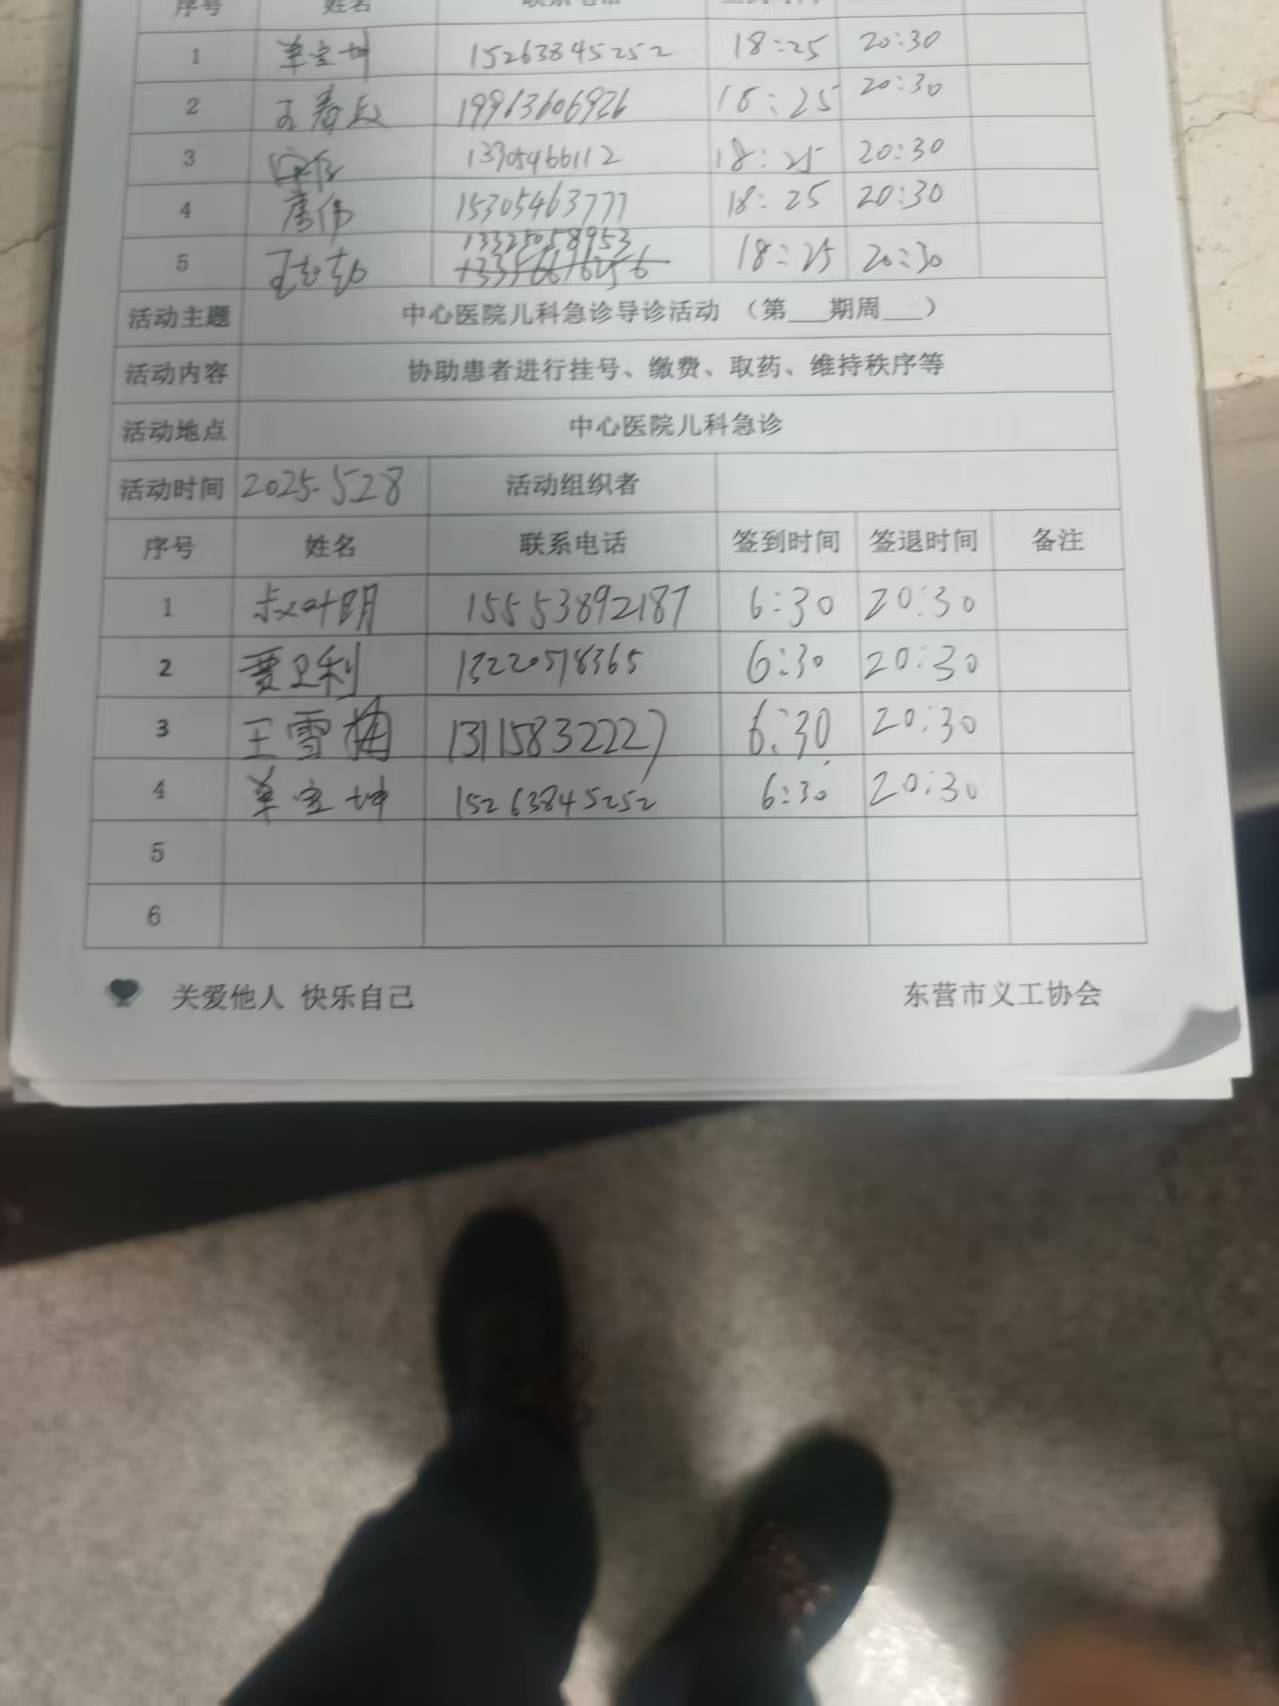 序号 姓名 联系电话
1 单宝坤 15263845252 18:25 20:30
2 王春 19963606926 18:25 20:30
3 13705466112 18:25 20:30
4 唐伟 15305463777 18:25 20:30
13325058953
5 18:25 20:30
活动主题 中心医院儿科急诊导诊活动 （第___期周___）
活动内容 协助患者进行挂号、缴费、取药、维持秩序等
活动地点 中心医院儿科急诊
活动时间 2025.5.28 活动组织者
序号 姓名 联系电话 签到时间 签退时间 备注
1 叔叶明 15553892187 6:30 20:30
2 贾卫利 13220578365 6:30 20:30
3 王雪梅 13115832227 6:30 20:30
4 单宝坤 15263845252 6:30 20:30
5
6
关爱他人 快乐自己 东营市义工协会